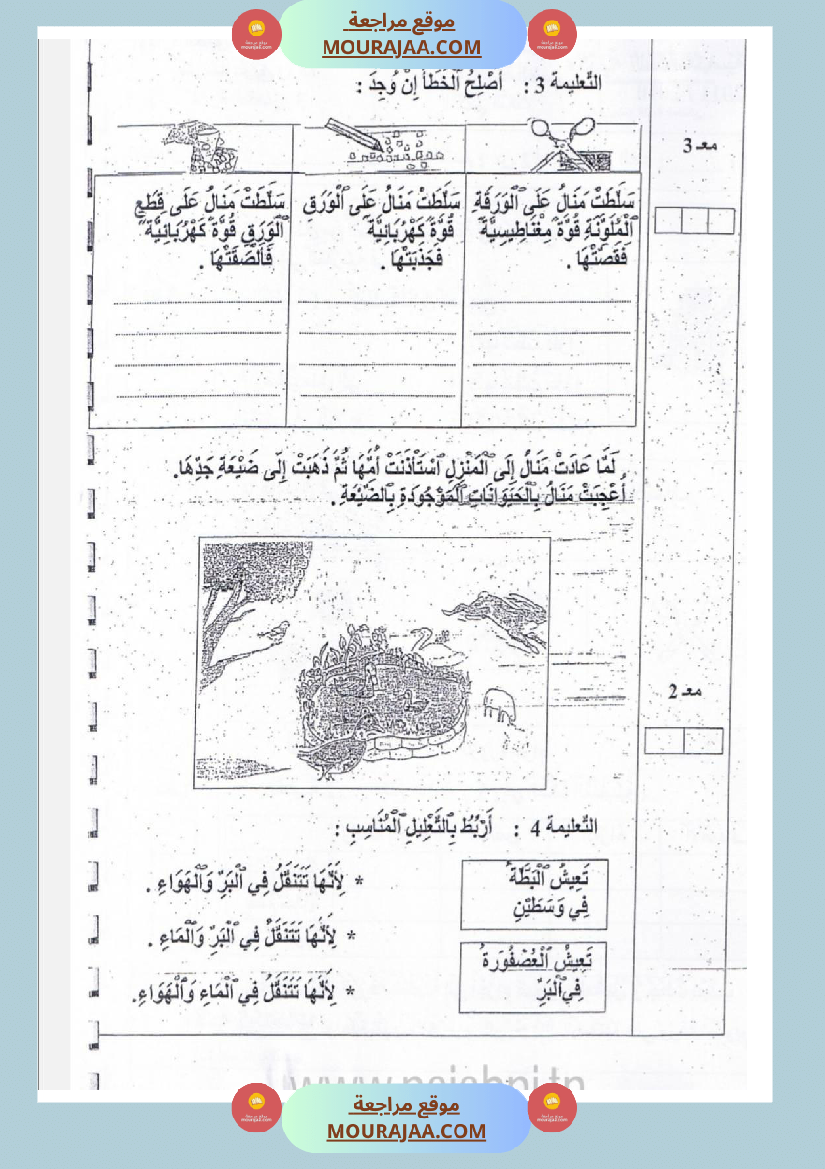 موقع مراجعة
MOURAJAA.COM
التّعليمة 3 : أُصْلِحُ ٱلْخَطَأَ إِنْ وُجِدَ :
معـ 3
سَلَّطَتْ مَنَالُ عَلَى ٱلْوَرَقَةِ
ٱلْمُلَوَّنَةِ قُوَّةً مِغْنَاطِيسِيَّةً
فَقَصَّتْهَا .
سَلَّطَتْ مَنَالُ عَلَى ٱلْوَرَقِ
قُوَّةً كَهْرُبَائِيَّةً
فَجَذَبَتْهَا .
سَلَّطَتْ مَنَالُ عَلَى قِطَعِ
ٱلْوَرَقِ قُوَّةً كَهْرُبَائِيَّةً
فَأَلْصَقَتْهَا .
لَمَّا عَادَتْ مَنَالُ إِلَى ٱلْمَنْزِلِ ٱسْتَأْذَنَتْ أُمَّهَا ثُمَّ ذَهَبَتْ إِلَى ضَيْعَةِ جَدِّهَا.
أُعْجِبَتْ مَنَالُ بِٱلْحَيَوَانَاتِ ٱلْمَوْجُودَةِ بِٱلضَّيْعَةِ .
معـ 2
التّعليمة 4 : أَرْبُطُ بِٱلتَّعْلِيلِ ٱلْمُنَاسِبِ :
تَعِيشُ ٱلْبَطَّةُ
فِي وَسَطَيْنِ
تَعِيشُ ٱلْعُصْفُورَةُ
فِي ٱلْبَرِّ
* لِأَنَّهَا تَتَنَقَّلُ فِي ٱلْبَرِّ وَٱلْهَوَاءِ .
* لِأَنَّهَا تَتَنَقَّلُ فِي ٱلْبَرِّ وَٱلْمَاءِ .
* لِأَنَّهَا تَتَنَقَّلُ فِي ٱلْمَاءِ وَٱلْهَوَاءِ.
موقع مراجعة
MOURAJAA.COM